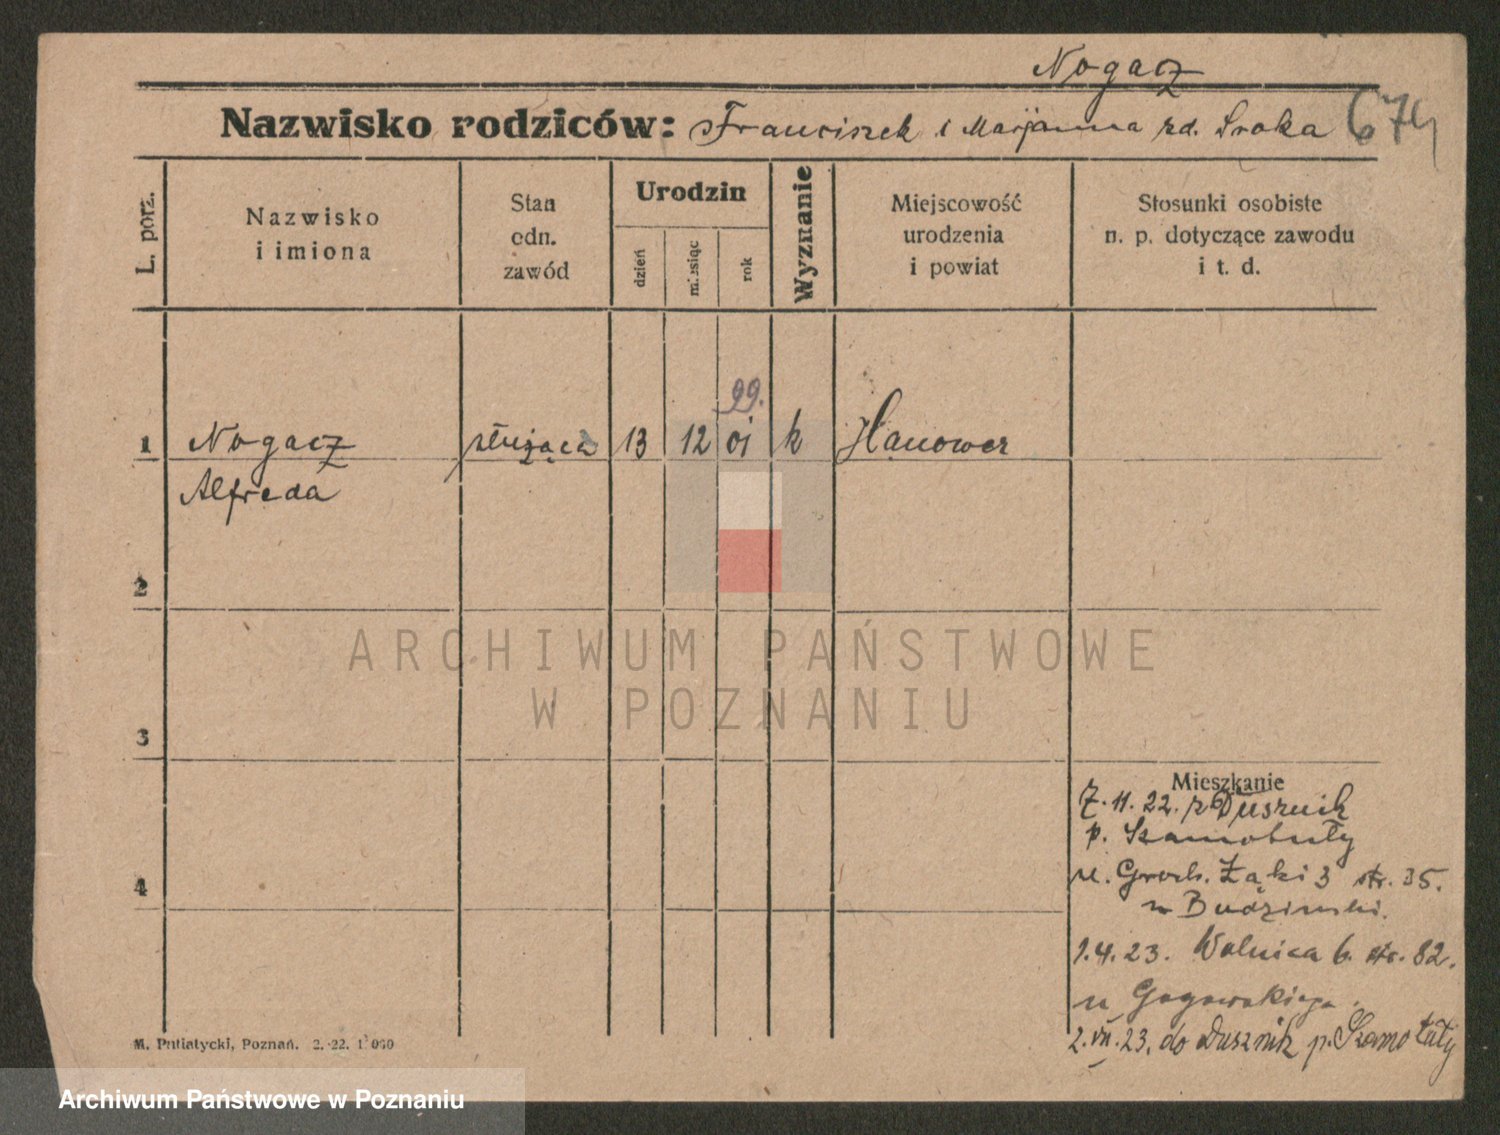 Nogacz
Nazwisko rodziców: Franciszek i Marjanna zd. Sroka 674
L. porz.
Nazwisko
i imiona
Stan
odn.
zawód
Urodzin
dzień
miesiąc
rok
Wyznanie
Miejscowość
urodzenia
i powiat
Stosunki osobiste
n. p. dotyczące zawodu
i t. d.
99.
1 Nogacz służąca 13 12 01 k Hanower
Alfreda
2
ARCHIWUM PAŃSTWOWE
W POZNANIU
3
Mieszkanie
7.11.22. z Dusznik
p. Szamotuły
4
ul. Groch. Łąki 3 str. 35.
u Budzinski.
1.4.23. Wolnica 6. str. 82.
u Gogowskiego.
2.VII.23. do Dusznik p. Szamotuły
M. Putiatycki, Poznań. 2.-22. 1 000
Archiwum Państwowe w Poznaniu